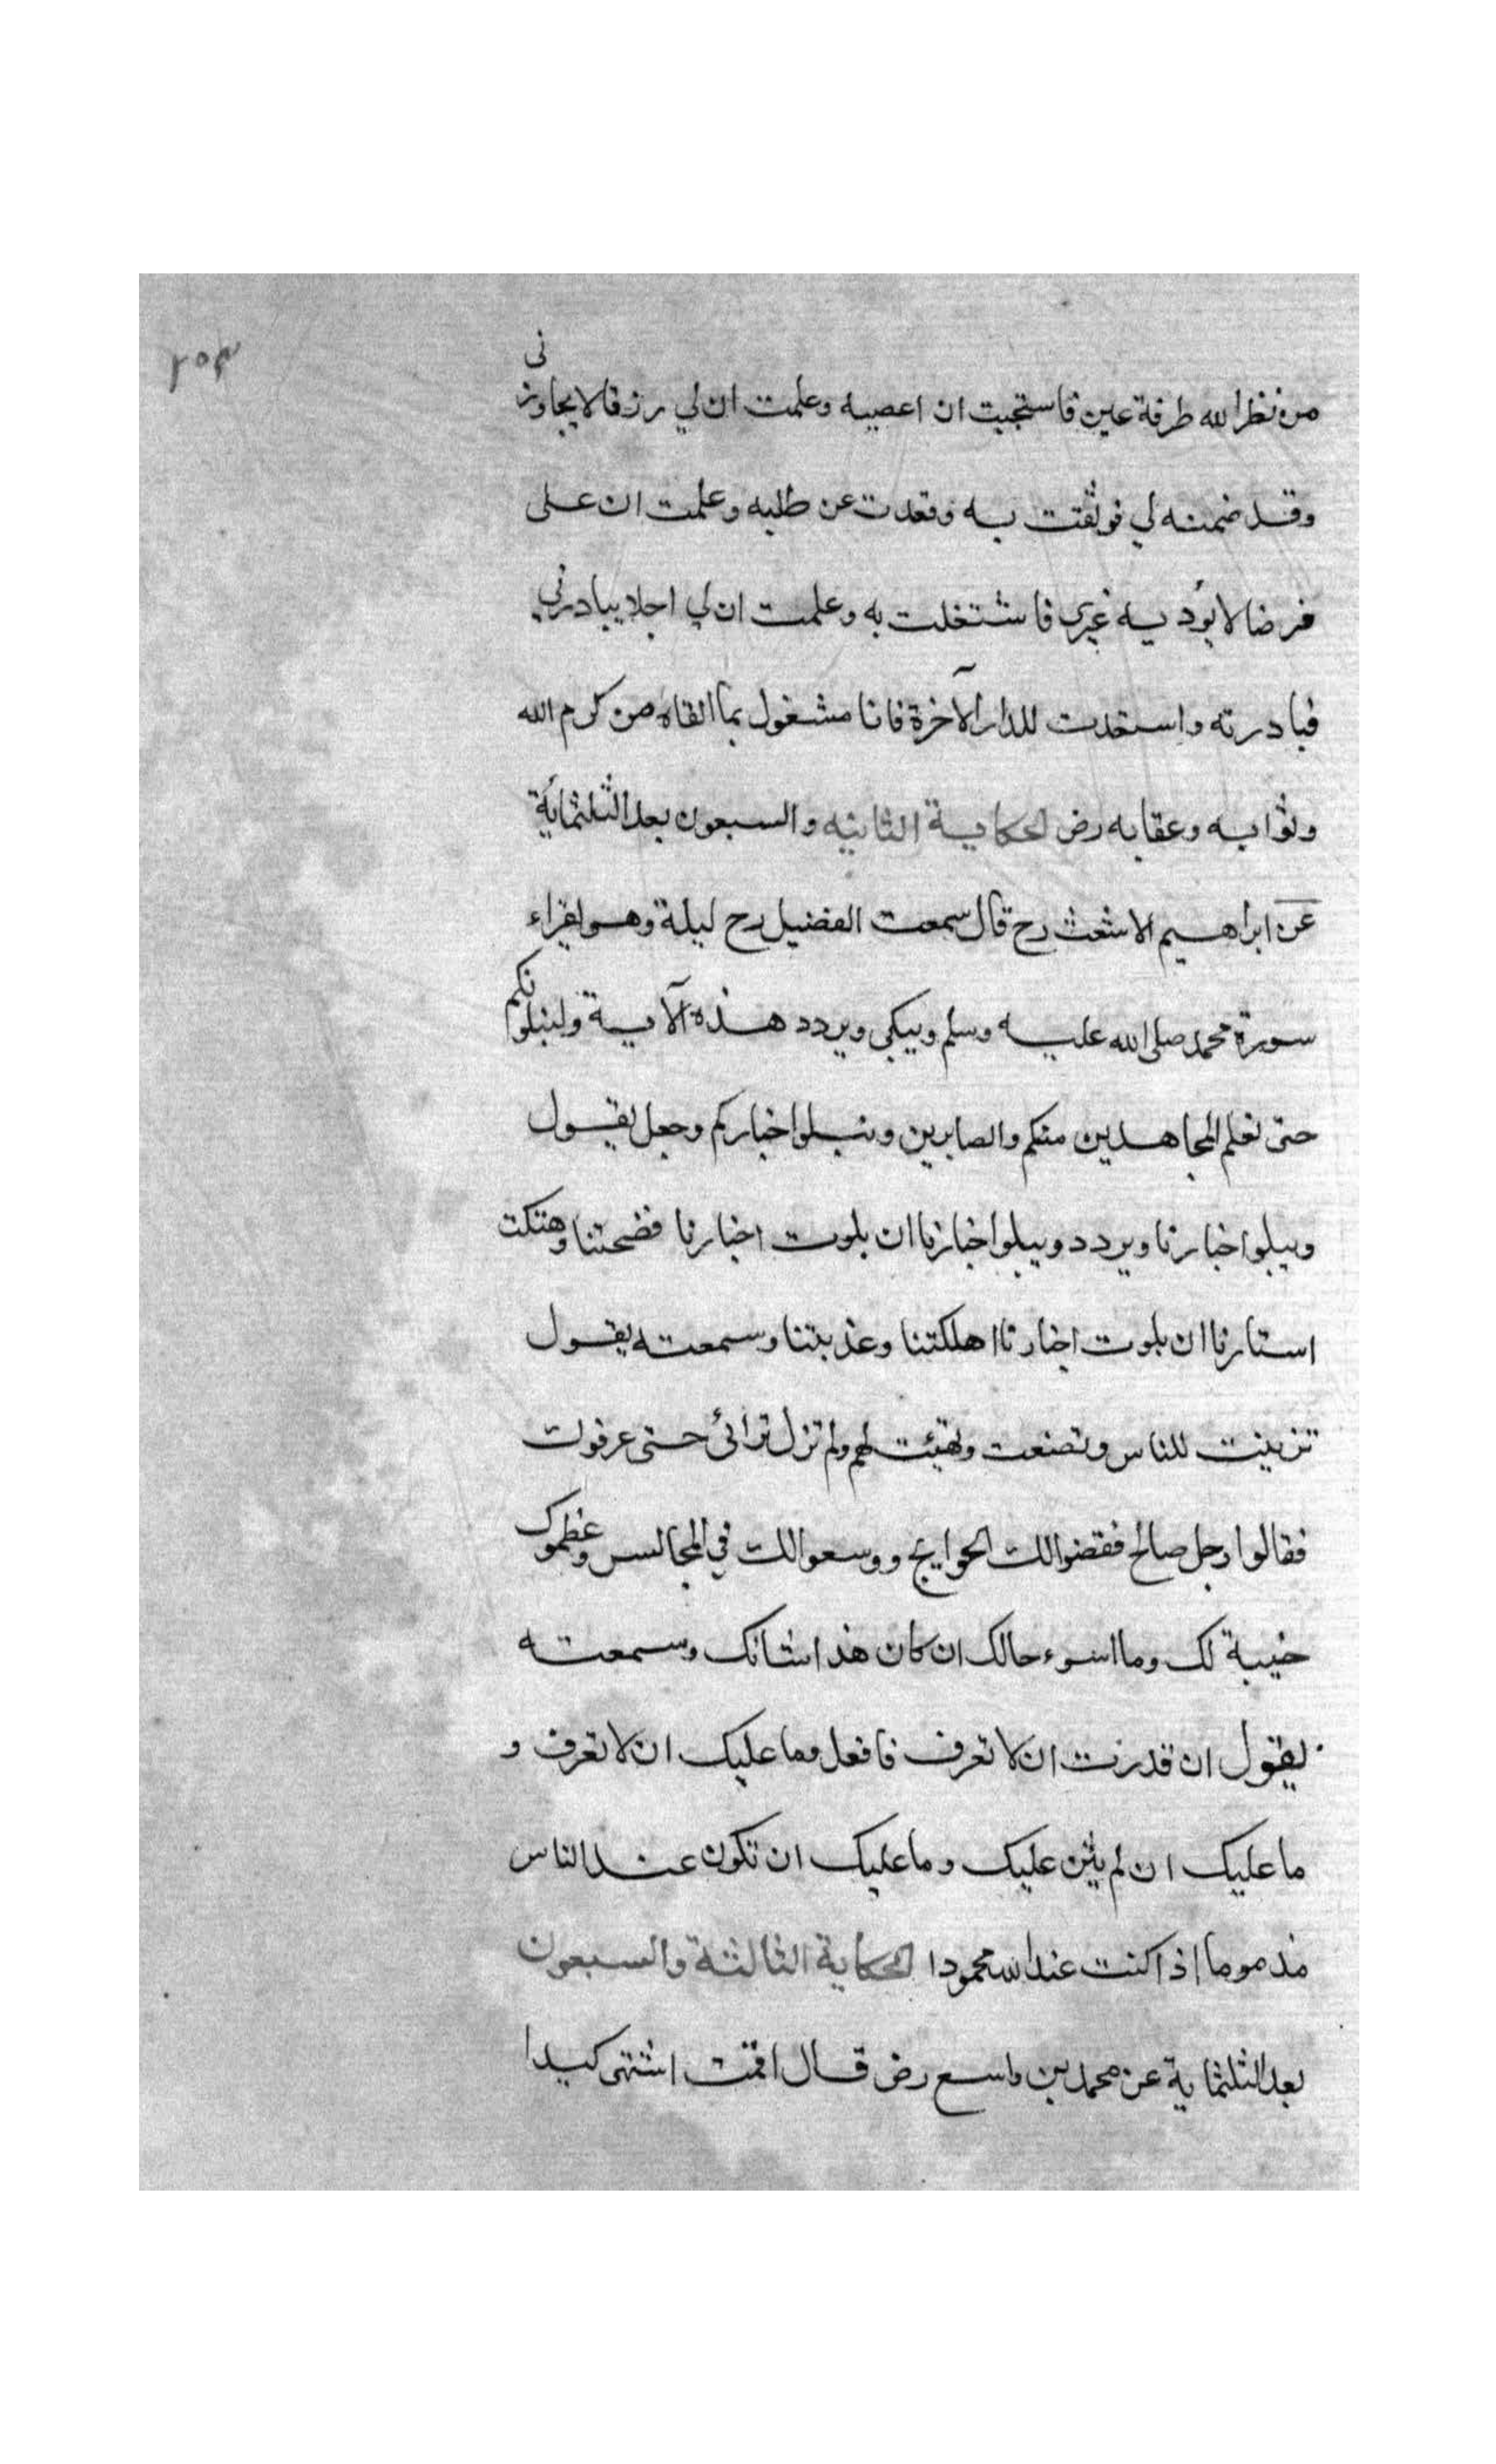 ٢٠٣
من نظر الله طرفة عين فاستحييت ان اعصيه وعلمت ان لي رزقا لا يجاوزني
وقد ضمنه لي فوثقت به وقعدت عن طلبه وعلمت ان على
فرضا لا يؤديه غيري فاشتغلت به وعلمت ان لي اجلا يبادرني
فبادرته واستعدت للدار الآخرة فانا مشغول بما القاه من كرم الله
وثوابه وعقابه رض الحكاية الثانيه والسبعون بعد الثلثمائة
عن ابراهيم الاشعث رح قال سمعت الفضيل رح ليلة وهو يقراء
سورة محمد صلى الله عليه وسلم ويبكي ويردد هذه الآية ولنبلونكم
حتى نعلم المجاهدين منكم والصابرين ونبلوا اخباركم وجعل يقول
ويبلوا اخبارنا ويردد ويبلوا اخبارنا ان بلوت اخبارنا فضحتنا وهتكت
استارنا ان بلوت اخبارنا اهلكتنا وعذبتنا وسمعته يقول
تزينت للناس وتصنعت وتهيئت لهم ولم تزل ترائى حتى عرفوك
فقالوا رجل صالح فقضوا لك الحوايج ووسعوا لك في المجالس وعظموك
خيبة لك وما اسوء حالك ان كان هذا شانك وسمعته
يقول ان قدرت ان لا تعرف فافعل وما عليك ان لا تعرف و
ما عليك ان لم يثن عليك وما عليك ان تكون عند الناس
مذموما اذا كنت عند الله محمودا الحكاية الثالثة والسبعون
بعد الثلثماية عن محمد بن واسع رض قال اقمت اشتهى كبدا